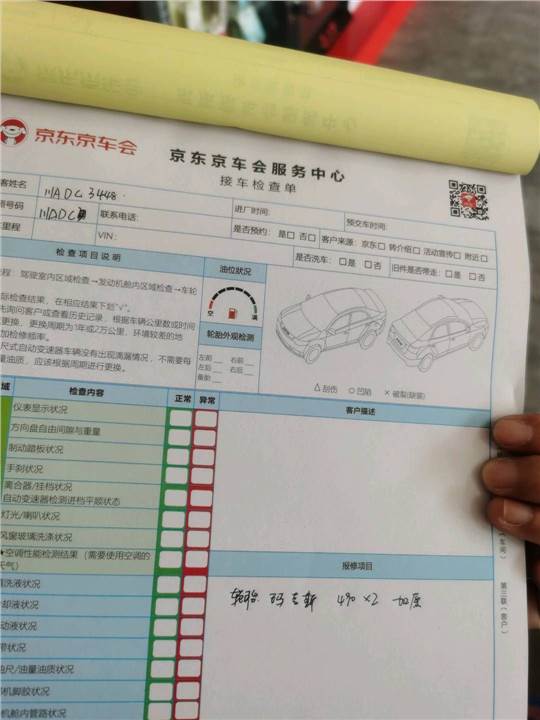 京东京车会
京东京车会服务中心
接车检查单
客姓名
进厂时间:
预交车时间:
号码
联系电话:
是否预约: 是□ 否□
客户来源: 京东□ 转介绍□ 活动宣传□ 附近□
里程
VIN:
是否洗车: □是 □否
旧件是否带走: □是 □否
检查项目说明
油位状况
程: 驾驶室内区域检查→发动机舱内区域检查→车轮
际检查结果, 在相应结果下划"√"。
先询问客户或查看历史记录, 根据车辆公里数或时间
更换, 更换周期为1年或2万公里, 环境较差的地
加检修频率。
尺式自动变速器车辆没有出现滴漏情况, 不需要每
量油质, 应该根据周期进行更换。
空 满
轮胎外观检测
左前 右前
左后 右后
备胎
△ 刮伤 ○ 凹陷 × 破裂(破损)
域 检查内容 正常 异常
客户描述
仪表显示状况
方向盘自由间隙与重量
制动踏板状况
手刹状况
离合器/挂档状况
自动变速器检测进档平顺状态
灯光/喇叭状况
风窗玻璃洗涤状况
★空调性能检测结果 (需要使用空调的
天气)
报修项目
洗液状况
轮胎 玛吉斯 490 ×2
却液状况
动液状况
带状况
油尺/油量油质状况
机脚胶状况
机舱内管路状况
第三联 (客户)